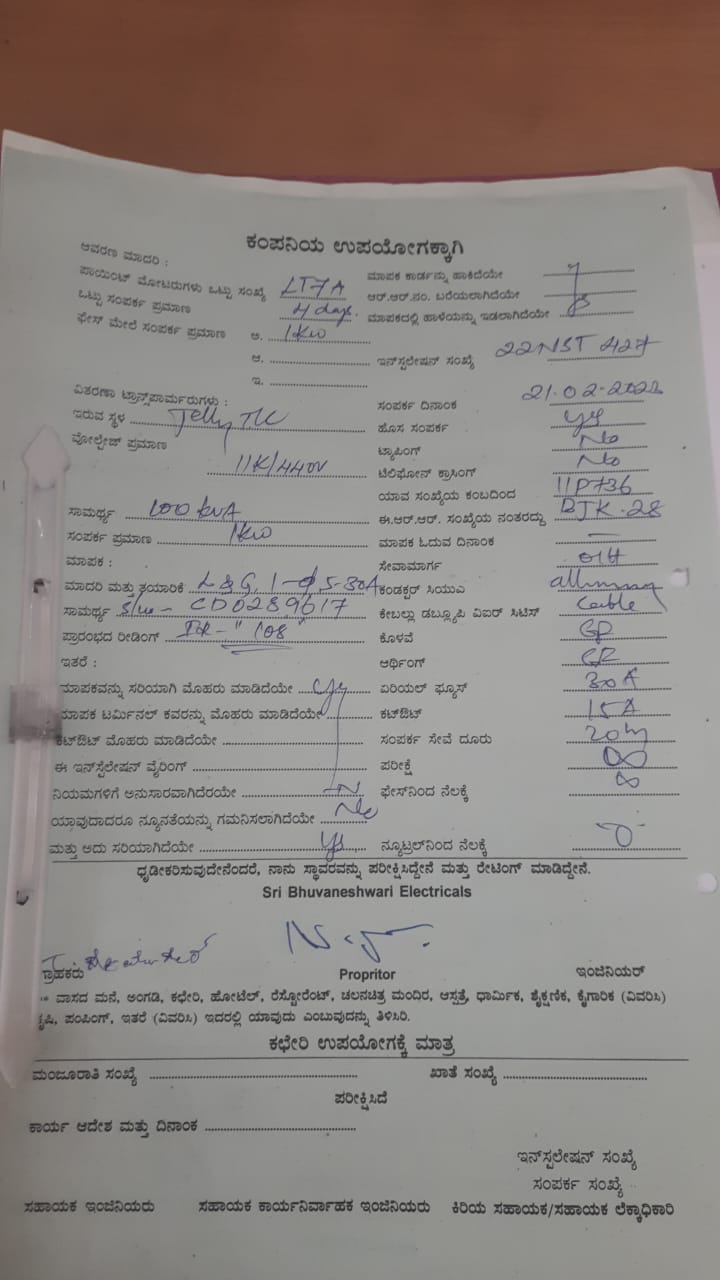 ಕಂಪನಿಯ ಉಪಯೋಗಕ್ಕಾಗಿ
ಆವರಣ ಮಾದರಿ :
ಪಾಯಿಂಟ್ ಮೋಟರುಗಳು ಒಟ್ಟು ಸಂಖ್ಯೆ LT7A ಮಾಪಕ ಕಾರ್ಡನ್ನು ಹಾಕಿದೆಯೇ
ಒಟ್ಟು ಸಂಪರ್ಕ ಪ್ರಮಾಣ 4 days ಆರ್.ಆರ್.ನಂ. ಬರೆಯಲಾಗಿದೆಯೇ
ಫೇಸ್ ಮೇಲೆ ಸಂಪರ್ಕ ಪ್ರಮಾಣ ಅ. 1KW ಮಾಪಕದಲ್ಲಿ ಹಾಳೆಯನ್ನು ಇಡಲಾಗಿದೆಯೇ
ಆ. ಇನ್‌ಸ್ಟಲೇಷನ್ ಸಂಖ್ಯೆ 22NST 427
ಇ.
ವಿತರಣಾ ಟ್ರಾನ್ಸ್‌ಪಾರ್ಮರುಗಳು : ಸಂಪರ್ಕ ದಿನಾಂಕ 21.02.2022
ಇರುವ ಸ್ಥಳ Jelly TC ಹೊಸ ಸಂಪರ್ಕ yes
ವೋಲ್ಟೇಜ್ ಪ್ರಮಾಣ 11K/440V ಟ್ಯಾಪಿಂಗ್ No
ಟೆಲಿಫೋನ್ ಕ್ರಾಸಿಂಗ್ No
ಯಾವ ಸಂಖ್ಯೆಯ ಕಂಬದಿಂದ 11P736
ಸಾಮರ್ಥ್ಯ 100 kVA ಈ.ಆರ್.ಆರ್. ಸಂಖ್ಯೆಯ ನಂತರದ್ದು DJK.28
ಸಂಪರ್ಕ ಪ್ರಮಾಣ 1KW ಮಾಪಕ ಓದುವ ದಿನಾಂಕ –
ಮಾಪಕ : ಸೇವಾಮಾರ್ಗ O/H
ಮಾದರಿ ಮತ್ತು ತಯಾರಿಕೆ L&G, 1-ϕ 5-30A ಕಂಡಕ್ಟರ್ ಸಿಯುಎ
ಸಾಮರ್ಥ್ಯ Sl no - CD0289617 ಕೇಬಲ್ಲು ಡಬ್ಲ್ಯೂಪಿ ವಿಐರ್ ಸಿಟಿಸ್ Cable
ಪ್ರಾರಂಭದ ರೀಡಿಂಗ್ IR - "108" ಕೊಳವೆ GP
ಇತರೆ : ಆರ್ಥಿಂಗ್
ಮಾಪಕವನ್ನು ಸರಿಯಾಗಿ ಮೊಹರು ಮಾಡಿದೆಯೇ yes ಏರಿಯಲ್ ಫ್ಯೂಸ್ 30A
ಮಾಪಕ ಟರ್ಮಿನಲ್ ಕವರನ್ನು ಮೊಹರು ಮಾಡಿದೆಯೇ ಕಟ್‌ಔಟ್ 15A
ಕಟ್‌ಔಟ್ ಮೊಹರು ಮಾಡಿದೆಯೇ ಸಂಪರ್ಕ ಸೇವೆ ದೂರು 20m
ಈ ಇನ್‌ಸ್ಟಲೇಷನ್ ವೈರಿಂಗ್ ಪರೀಕ್ಷೆ ∞
ನಿಯಮಗಳಿಗೆ ಅನುಸಾರವಾಗಿದೆರಯೇ ಫೇಸ್‌ನಿಂದ ನೆಲಕ್ಕೆ ∞
ಯಾವುದಾದರೂ ನ್ಯೂನತೆಯನ್ನು ಗಮನಿಸಲಾಗಿದೆಯೇ No
ಮತ್ತು ಅದು ಸರಿಯಾಗಿದೆಯೇ yes ನ್ಯೂಟ್ರಲ್‌ನಿಂದ ನೆಲಕ್ಕೆ
ಧೃಡೀಕರಿಸುವುದೇನೆಂದರೆ, ನಾನು ಸ್ಥಾವರವನ್ನು ಪರೀಕ್ಷಿಸಿದ್ದೇನೆ ಮತ್ತು ರೇಟಿಂಗ್ ಮಾಡಿದ್ದೇನೆ.
Sri Bhuvaneshwari Electricals
ಗ್ರಾಹಕರು Propritor ಇಂಜಿನಿಯರ್
** ವಾಸದ ಮನೆ, ಅಂಗಡಿ, ಕಛೇರಿ, ಹೋಟೆಲ್, ರೆಸ್ಟೋರೆಂಟ್, ಚಲನಚಿತ್ರ ಮಂದಿರ, ಆಸ್ಪತ್ರೆ, ಧಾರ್ಮಿಕ, ಶೈಕ್ಷಣಿಕ, ಕೈಗಾರಿಕ (ವಿವರಿಸಿ)
ಕೃಷಿ, ಪಂಪಿಂಗ್, ಇತರೆ (ವಿವರಿಸಿ) ಇದರಲ್ಲಿ ಯಾವುದು ಎಂಬುವುದನ್ನು ತಿಳಿಸಿರಿ.
ಕಛೇರಿ ಉಪಯೋಗಕ್ಕೆ ಮಾತ್ರ
ಮಂಜೂರಾತಿ ಸಂಖ್ಯೆ ಖಾತೆ ಸಂಖ್ಯೆ
ಪರೀಕ್ಷಿಸಿದೆ
ಕಾರ್ಯ ಆದೇಶ ಮತ್ತು ದಿನಾಂಕ
ಇನ್‌ಸ್ಟಲೇಷನ್ ಸಂಖ್ಯೆ
ಸಂಪರ್ಕ ಸಂಖ್ಯೆ
ಸಹಾಯಕ ಇಂಜಿನಿಯರು ಸಹಾಯಕ ಕಾರ್ಯನಿರ್ವಾಹಕ ಇಂಜಿನಿಯರು ಕಿರಿಯ ಸಹಾಯಕ/ಸಹಾಯಕ ಲೆಕ್ಕಾಧಿಕಾರಿ